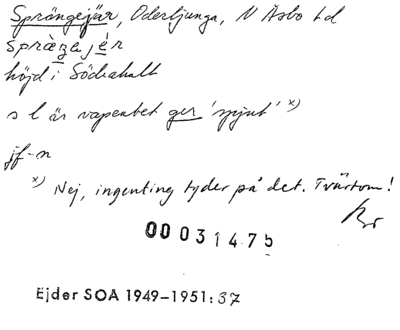 Sprängejär, Oderljunga, N Åsbo hd
spràŋaję́r
höjd i Södrahult
s l är vapenbet ger 'spjut' x)
jf-n
x) Nej, ingenting tyder på det. Tvärtom!
00031475
Ejder SOA 1949–1951: 37